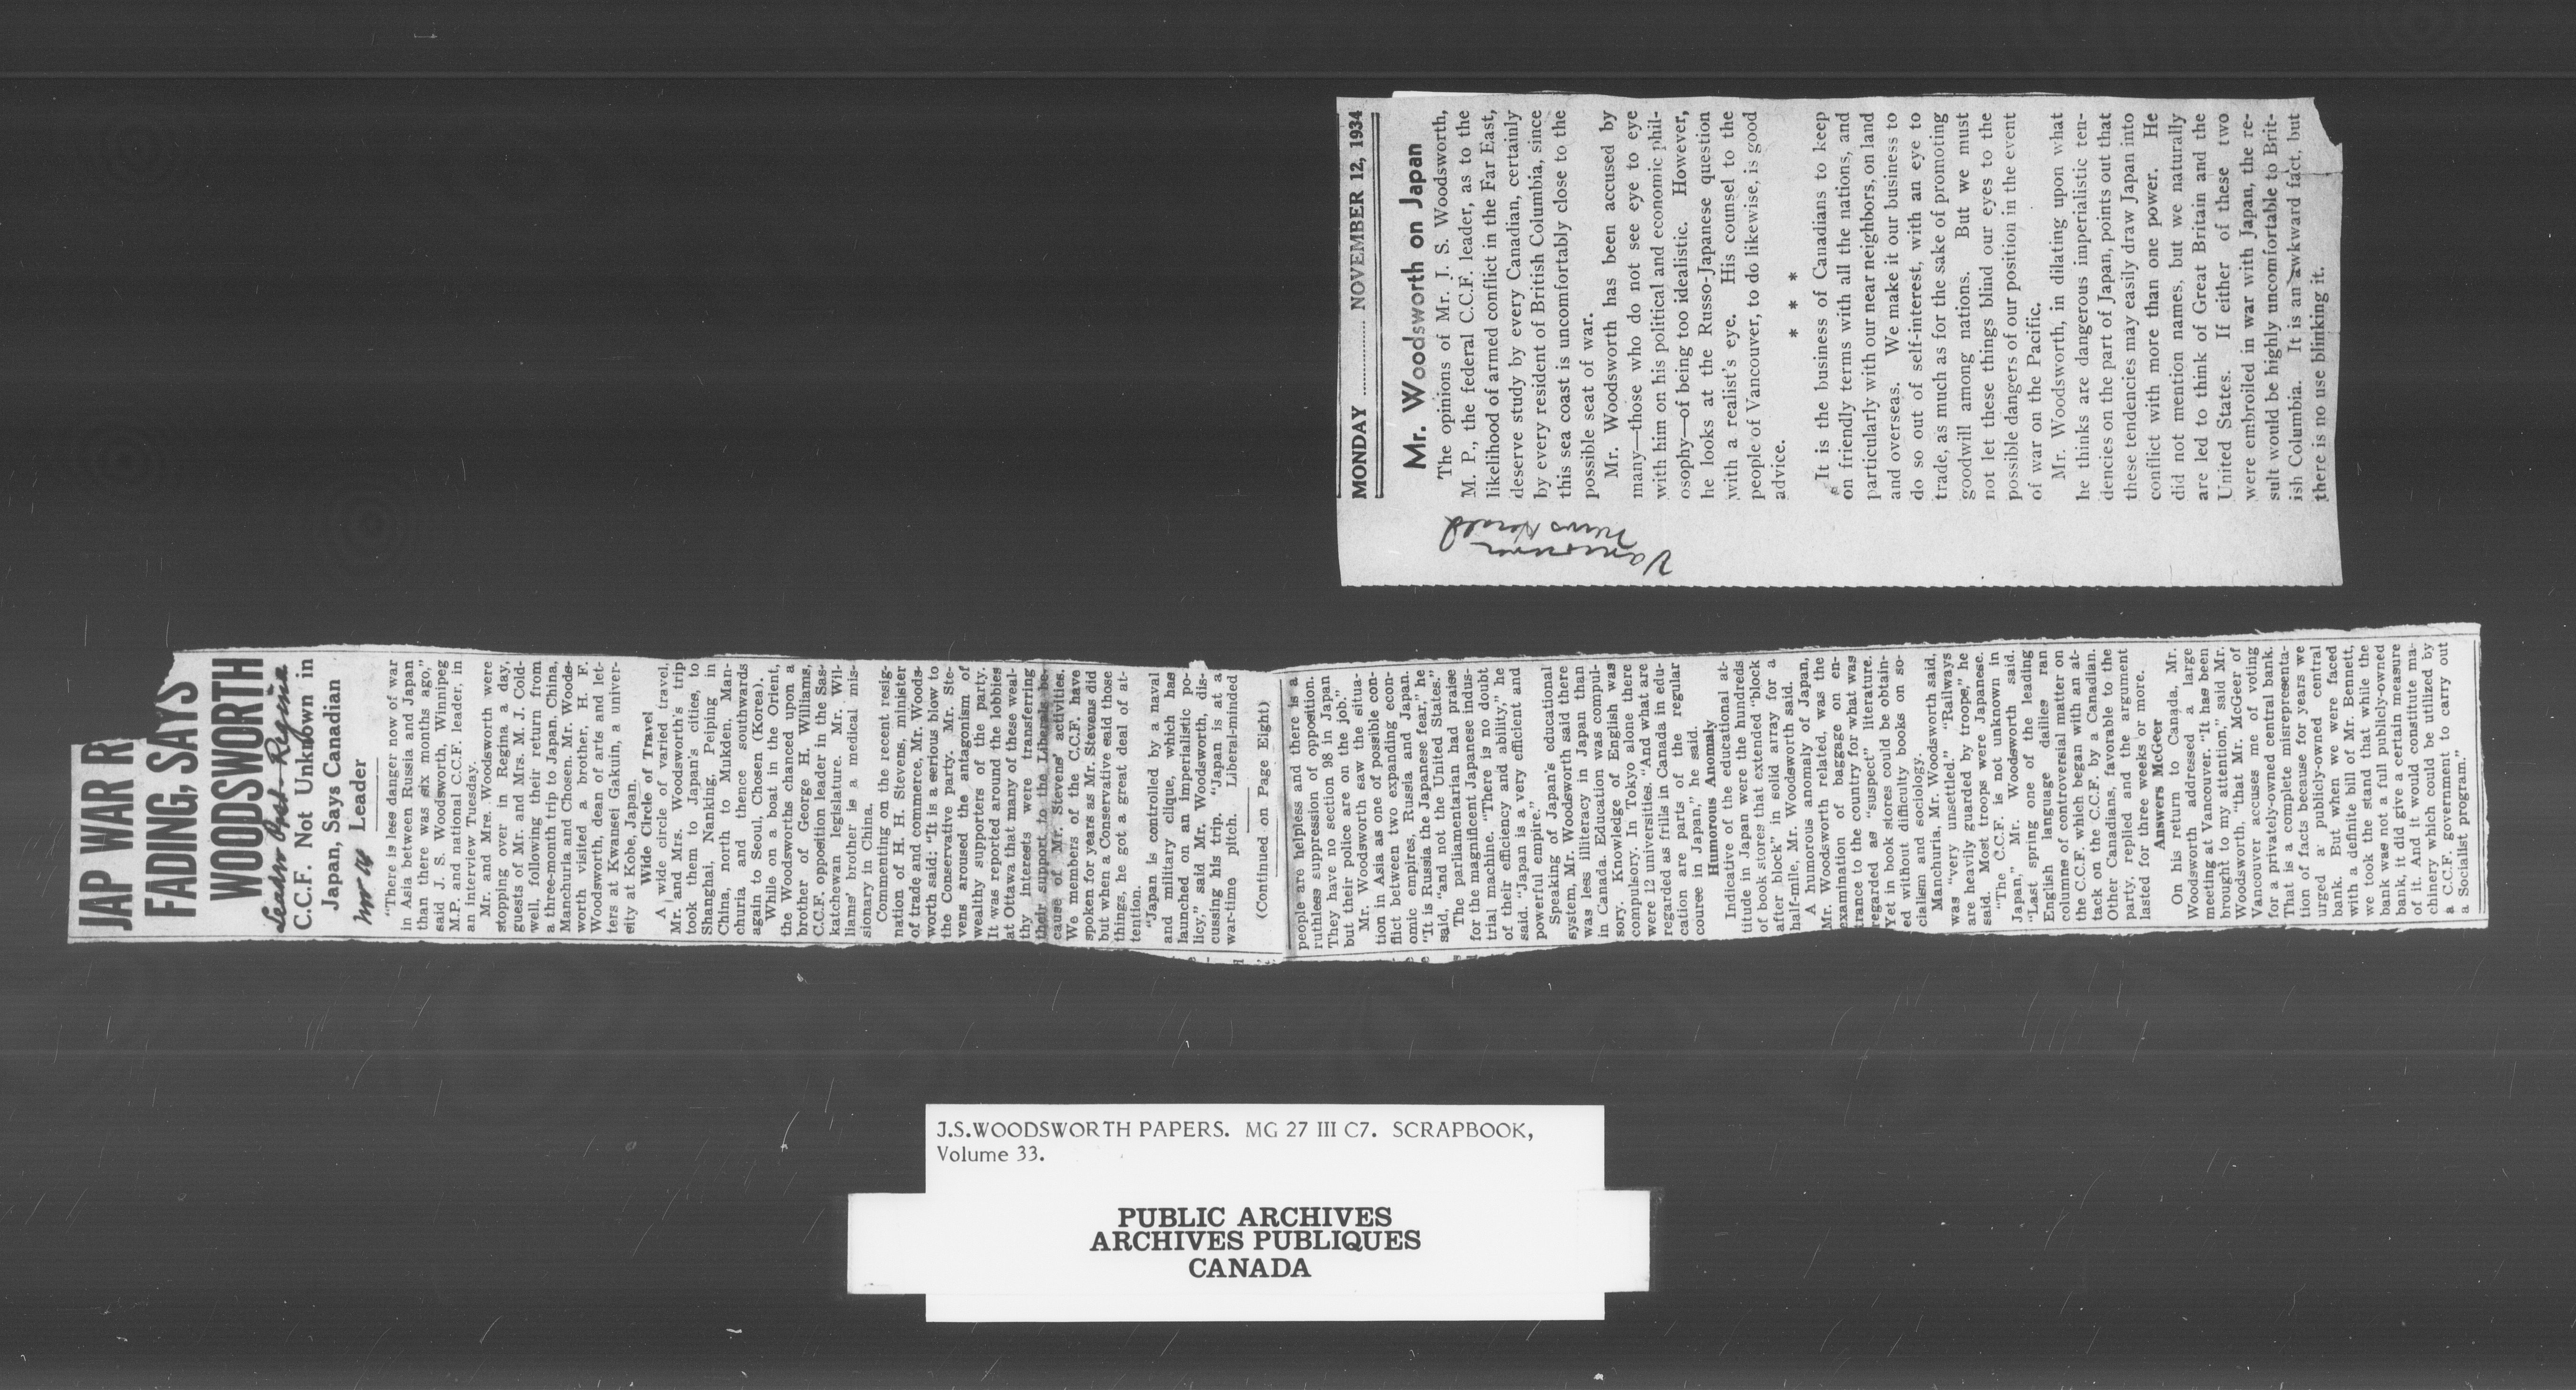 JAP WAR R
FADING, SAYS
WOODSWORTH
Leader Post - Regina
C.C.F. Not Unknown in
Japan, Says Canadian
Leader
Nov 14
"There is less danger now of war
in Asia between Russia and Japan
than there was six months ago,"
said J. S. Woodsworth, Winnipeg
M.P. and national C.C.F. leader, in
an interview Tuesday.
Mr. and Mrs. Woodsworth were
stopping over in Regina a day,
guests of Mr. and Mrs. M. J. Cold-
well, following their return from
a three-month trip to Japan, China,
Manchuria and Chosen. Mr. Woods-
worth visited a brother, H. F.
Woodsworth, dean of arts and let-
ters at Kwansei Gakuin, a univer-
sity at Kobe, Japan.
Wide Circle of Travel
A wide circle of varied travel,
Mr. and Mrs. Woodsworth's trip
took them to Japan's cities, to
Shanghai, Nanking, Peiping in
China, north to Mukden, Man-
churia and thence southwards
again to Seoul, Chosen (Korea).
While on a boat in the Orient,
the Woodsworths chanced upon a
brother of George H. Williams,
C.C.F. opposition leader in the Sas-
katchewan legislature. Mr. Wil-
liams' brother is a medical mis-
sionary in China.
Commenting on the recent resig-
nation of H. H. Stevens, minister
of trade and commerce, Mr. Woods-
worth said: "It is a serious blow to
the Conservative party. Mr. Ste-
vens aroused the antagonism of
wealthy supporters of the party.
It was reported around the lobbies
at Ottawa that many of these weal-
thy interests were transfering
their support to the Liberals be-
cause of Mr. Stevens' activities.
We members of the C.C.F. have
spoken for years as Mr. Stevens did
but when a Conservative said those
things, he got a great deal of at-
tention.
"Japan is controlled by a naval
and military clique, which has
launched on an imperialistic po-
licy," said Mr. Woodsworth, dis-
cussing his trip. "Japan is at a
war-time pitch. Liberal-minded
(Continued on Page Eight)
people are helpless and there is a
ruthless suppression of opposition.
They have no section 98 in Japan
but their police are on the job."
Mr. Woodsworth saw the situa-
tion in Asia as one of possible con-
flict between two expanding econ-
omic empires, Russia and Japan.
"It is Russia the Japanese fear," he
said, "and not the United States."
The parliamentarian had praise
for the magnificent Japanese indus-
trial machine. "There is no doubt
of their efficiency and ability," he
said. "Japan is a very efficient and
powerful empire."
Speaking of Japan's educational
system, Mr. Woodsworth said there
was less illiteracy in Japan than
in Canada. Education was compul-
sory. Knowledge of English was
compulsory. In Tokyo alone there
were 12 universities. "And what are
regarded as frills in Canada in edu-
cation are parts of the regular
course in Japan," he said.
Humorous Anomaly
Indicative of the educational at-
titude in Japan were the hundreds
of book stores that extended "block
after block" in solid array for a
half-mile, Mr. Woodsworth said.
A humorous anomaly of Japan,
Mr. Woodsworth related, was the
examination of baggage on en-
trance to the country for what was
regarded as "suspect" literature.
Yet in book stores could be obtain-
ed without difficulty books on so-
cialism and sociology.
Manchuria, Mr. Woodsworth said,
was "very unsettled." "Railways
are heavily guarded by troops," he
said. Most troops were Japanese.
"The C.C.F. is not unknown in
Japan," Mr. Woodsworth said.
"Last spring one of the leading
English language dailies ran
columns of controversial matter on
the C.C.F. which began with an at-
tack on the C.C.F. by a Canadian.
Other Canadians, favorable to the
party, replied and the argument
lasted for three weeks or more.
Answers McGeer
On his return to Canada, Mr.
Woodsworth addressed a large
meeting at Vancouver. "It has been
brought to my attention," said Mr.
Woodsworth, "that Mr. McGeer of
Vancouver accuses me of voting
for a privately-owned central bank.
That is a complete misrepresenta-
tion of facts because for years we
urged a publicly-owned central
bank. But when we were faced
with a definite bill of Mr. Bennett,
we took the stand that while the
bank was not a full publicly-owned
bank, it did give a certain measure
of it. And it would constitute ma-
chinery which could be utilized by
a C.C.F. government to carry out
a Socialist program."
MONDAY .............. NOVEMBER 12, 1934
Vancouver
News Herald
Mr. Woodsworth on Japan
The opinions of Mr. J. S. Woodsworth,
M. P., the federal C.C.F. leader, as to the
likelihood of armed conflict in the Far East,
deserve study by every Canadian, certainly
by every resident of British Columbia, since
this sea coast is uncomfortably close to the
possible seat of war.
Mr. Woodsworth has been accused by
many—those who do not see eye to eye
with him on his political and economic phil-
osophy—of being too idealistic. However,
he looks at the Russo-Japanese question
with a realist's eye. His counsel to the
people of Vancouver, to do likewise, is good
advice.
* * *
It is the business of Canadians to keep
on friendly terms with all the nations, and
particularly with our near neighbors, on land
and overseas. We make it our business to
do so out of self-interest, with an eye to
trade, as much as for the sake of promoting
goodwill among nations. But we must
not let these things blind our eyes to the
possible dangers of our position in the event
of war on the Pacific.
Mr. Woodsworth, in dilating upon what
he thinks are dangerous imperialistic ten-
dencies on the part of Japan, points out that
these tendencies may easily draw Japan into
conflict with more than one power. He
did not mention names, but we naturally
are led to think of Great Britain and the
United States. If either of these two
were embroiled in war with Japan, the re-
sult would be highly uncomfortable to Brit-
ish Columbia. It is an awkward fact, but
there is no use blinking it.
J.S.WOODSWORTH PAPERS. MG 27 III C7. SCRAPBOOK,
Volume 33.
PUBLIC ARCHIVES
ARCHIVES PUBLIQUES
CANADA